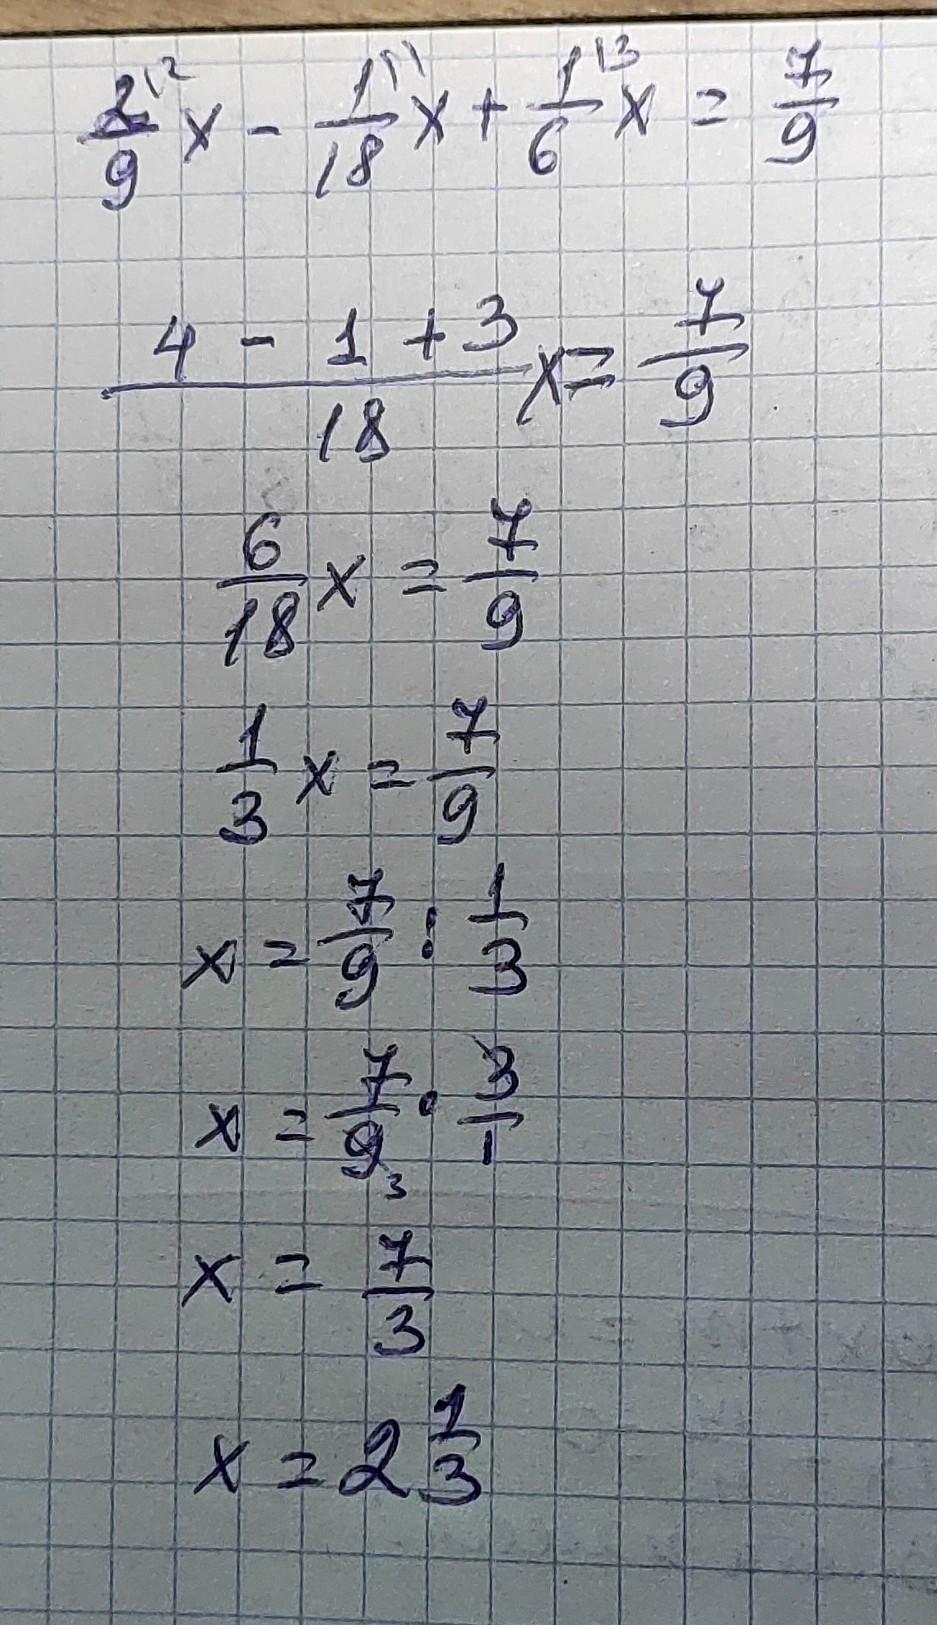 2\2/9 x - 1\1/18 x + 1\3/6 x = 7/9
4 - 1 + 3/18 x = 7/9
6/18 x = 7/9
1/3 x = 7/9
x = 7/9 : 1/3
x = 7/9 3 · 3/1
x = 7/3
x = 2 1/3